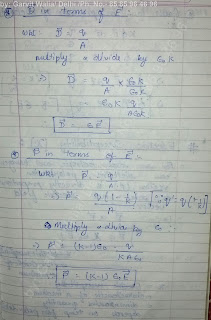 by: Garvit Walia/ Delhi /Ph. No.: 95 85 96 86 96
D in terms of E.
wkt. D = q/A
multiply & divide by ϵ₀K
⇒ D = q/A × ϵ₀K/ϵ₀K
⇒ ϵ₀K q/Aϵ₀K
D = ϵE
P in terms of E.
wkt. P = q'/A
⇒ P = q(1-1/K)/A [∴ q' = q(1-1/K)]
Multiply & divide by ϵ₀
⇒ P = (K-1)ϵ₀ q/KAϵ₀
P = (K-1) ϵ₀E